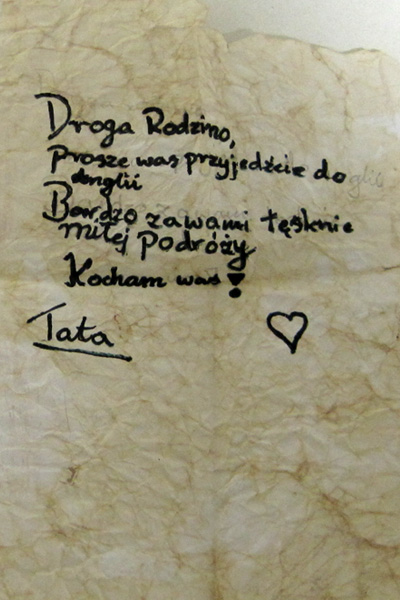 Droga Rodzino,
Prosze was przyjedźcie do
Anglii
Bardzo zawami tęsknie
miłej Podróży
Kocham was!
Tata